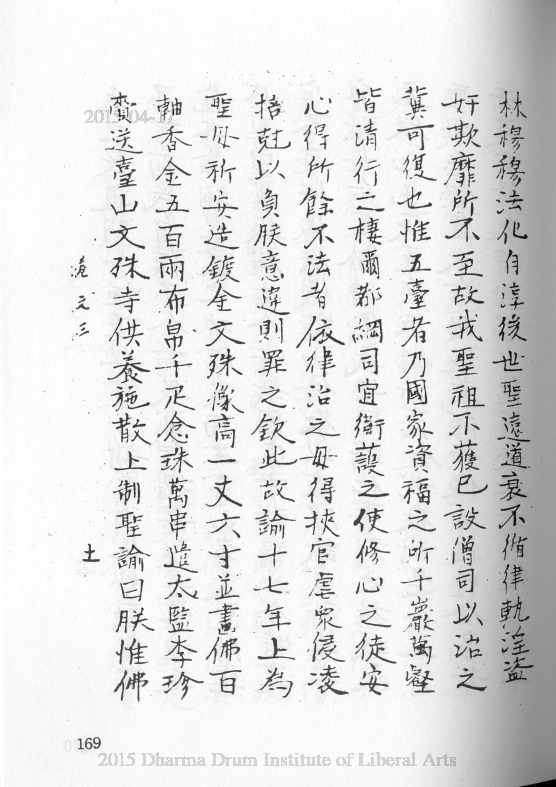 林穆穆法化自淳後世聖遠道衰不循律軌淫盜
奸欺靡所不至故我聖祖不獲已設僧司以治之
冀可復也惟五臺者乃國家資福之所千巖萬壑
皆清行之棲爾都綱司宜衛護之使修心之徒安
心得所餘不法者依律治之毋得挾官虐眾侵凌
捂尅以負朕意違則罪之欽此故諭十七年上為
聖母祈安造鍍金文殊像高一丈六寸並畫佛百
軸香金五百兩布帛千疋念珠萬串遣太監李珍
齎送臺山文殊寺供養施散上制聖諭曰朕惟佛
滝 文三
土
169
2015-04-1
2015 Dharma Drum Institute of Liberal Arts